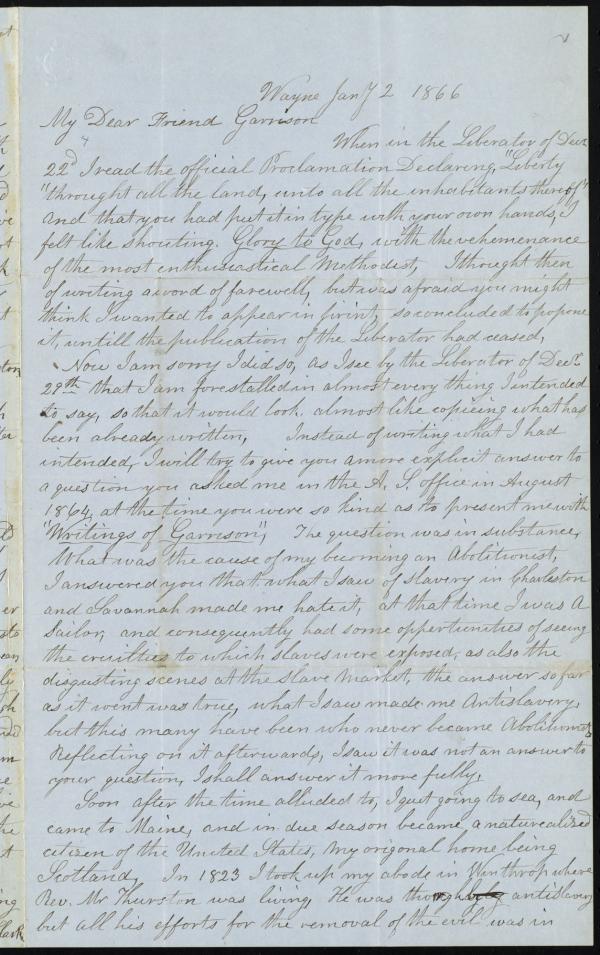 Wayne Jany 2 1866
My Dear Friend Garrison
When in the Liberator of Decr
22d I read the official Proclamation Declaring, "Liberty
"throught all the land, unto all the inhabitants thereof"
and that you had put it in type with your own hands, I
felt like shouting. Glory to God, with the vehemenance
of the most enthusiastical Methodist, I thought then
of writing a word of farewell, but was afraid you might
think I wanted to appear in print, so concluded to popone
it, untill the publication of the Liberator had ceased,
Now I am sorry I did so, as I see by the Liberator of Decr.
29th that I am forestalled in almost every thing I intended
to say, so that it would look almost like copieing what has
been already written, Instead of writing what I had
intended, I will try to give you a more explicit answer to
a question you asked me in the A. S. office in August
1864, at the time you were so kind as to present me with
"Writings of Garrison", The question was in substance,
What was the cause of my becoming an Abolitionist,
I answered you that what I saw of slavery in Charleston
and Savannah made me hate it, at that time I was A
Sailor, and consequently had some opportunities of seeing
the cruilties to which slaves were exposed, as also the
disgusting scenes at the slave market, the answer so far
as it went was true, what I saw made me Antislavery,
but this many have been who never became Abolitionists
Reflecting on it afterwards, I saw it was not an answer to
your question, I shall answer it more fully,
Soon after the time alluded to, I quit going to sea, and
came to Maine, and in due season became a naturealized
citizen of the United States, my origonal home being
Scotland, In 1823 I took up my abode in Winthrop where
Rev. Mr Thurston was living, He was antislavery
but all his efforts for the removal of the evil was in